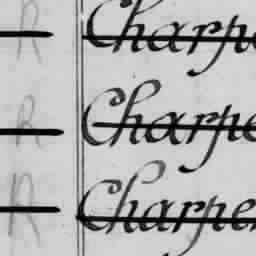 R Charpe
R Charpe
R Charpe